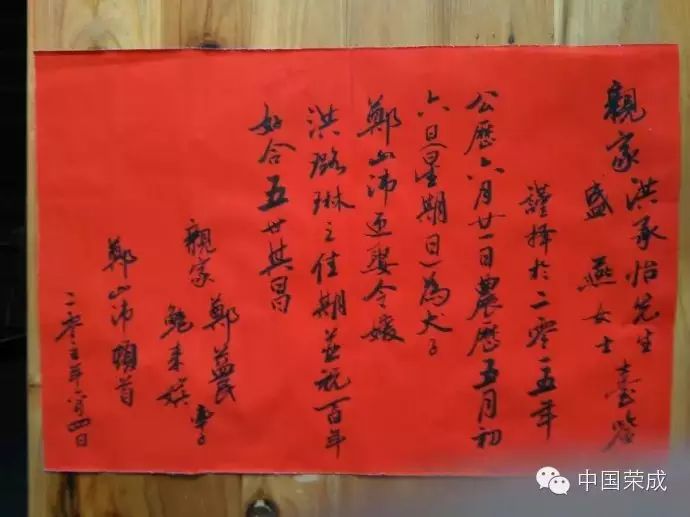 親家洪承怡先生臺鑒
盛燕女士
謹择於二零一五年
公歷六月廿一日農歷五月初
六日(星期日)為犬子
鄭山沛迎娶令嫒
洪璐琳之佳期並祝百年
好合五世其昌
親家鄭益民
鮑来
鄭山沛頓首
二零一五年六月四日
中国荣成